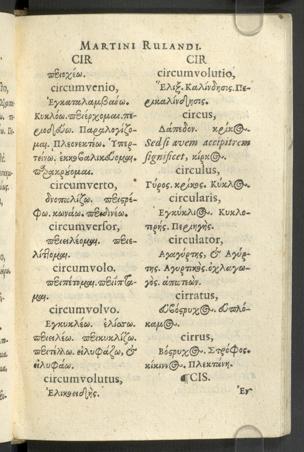 MARTINI RULANDI.
CIR
περιοχέω.
circumvenio,
Ἐγκαταλαμβάνω.
Κυκλόω. περιέρχομαι. πε-
ριοδεύω. Παραλογίζο-
μαι. Πλεονεκτέω. Ὑπερ-
τείνω.
παρακρούομαι.
circumverto,
περιστρέ-
φω. περιδινέω.
circumversor,
περιειλέομαι. περιε-
λίττομαι.
circumvolo.
περιπέτομαι. περιίπτα-
μαι.
circumvolvo.
Ἐγκυκλέω. ἑλίσσω.
περιειλέω. περικυκλίζω.
περιτίλλω. εἰλυφάζω, &
εἰλυφάω.
circumvolutus,
Ἑλικοειδής.
CIR
circumvolutio,
Ἕλιξ. Καλίνδησις. Πε-
ρικαλίνδησις.
circus,
Δάπεδον. κρίκος.
Sed si avem accipitrem
significet, κίρκος.
circulus,
Γῦρος. κρίκος. Κύκλος.
circularis,
Ἐγκύκλιος. Κυκλο-
τερής. Περιηγής.
circulator,
Ἀγαγύρτης, & Ἀγύρ-
της. Ἀγυρτικὸς. ὀχλαγω-
γὸς. ἀπατεών.
cirratus,
εὐβόστρυχος. εὐπλό-
καμος.
cirrus,
Βόστρυχος. Στρόφος.
κίκινος. Πλεκτάνη.
¶CIS.
Ἐν